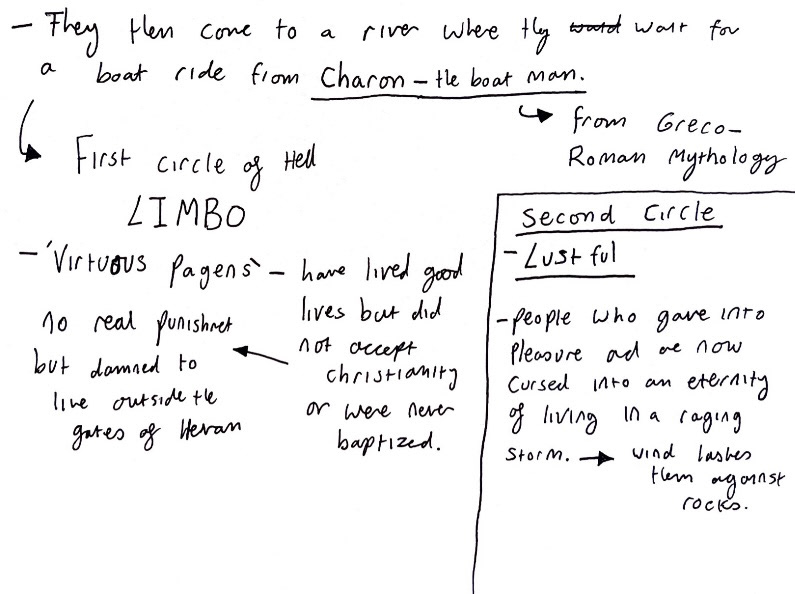 – They then come to a river where they wait for
a boat ride from Charon – the boat man.
↳ from Greco-
Roman Mythology
First circle of Hell
LIMBO
– 'Virtuous Pagens' – have lived good
lives but did
not accept
christianity
or were never
baptized.
no real punishmet
but damned to
live outside the
gates of Hevan
Second Circle
– Lustful
– people who gave into
pleasure ad are now
cursed into an eternity
of living in a raging
storm. → wind lashes
them against
rocks.